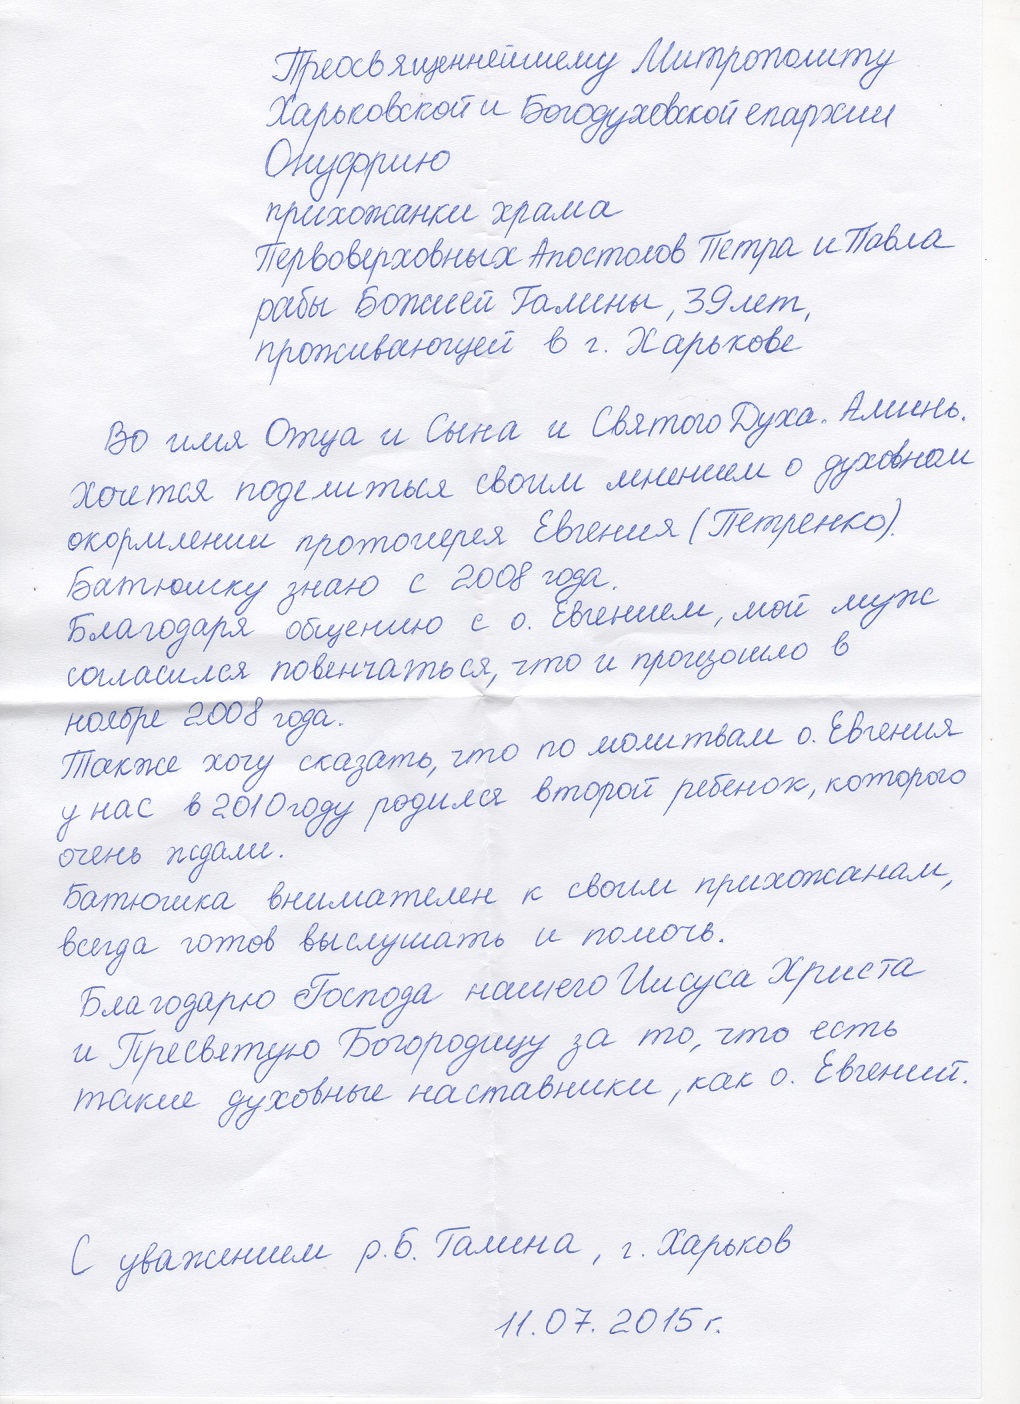 Преосвященнейшему Митрополиту
Харьковской и Богодуховской епархии
Онуфрию
прихожанки храма
Первоверховных Апостолов Петра и Павла
рабы Божией Галины, 39 лет,
проживающей в г. Харькове
Во имя Отца и Сына и Святого Духа. Аминь.
Хочется поделиться своим мнением о духовном
окормлении протоиерея Евгения (Петренко).
Батюшку знаю с 2008 года.
Благодаря общению с о. Евгением, мой муж
согласился повенчаться, что и произошло в
ноябре 2008 года.
Также хочу сказать, что по молитвам о. Евгения
у нас в 2010 году родился второй ребенок, которого
очень ждали.
Батюшка внимателен к своим прихожанам,
всегда готов выслушать и помочь.
Благодарю Господа нашего Иисуса Христа
и Пресветую Богородицу за то, что есть
такие духовные наставники, как о. Евгений.
С уважением р.Б. Галина, г. Харьков
11.07.2015 г.